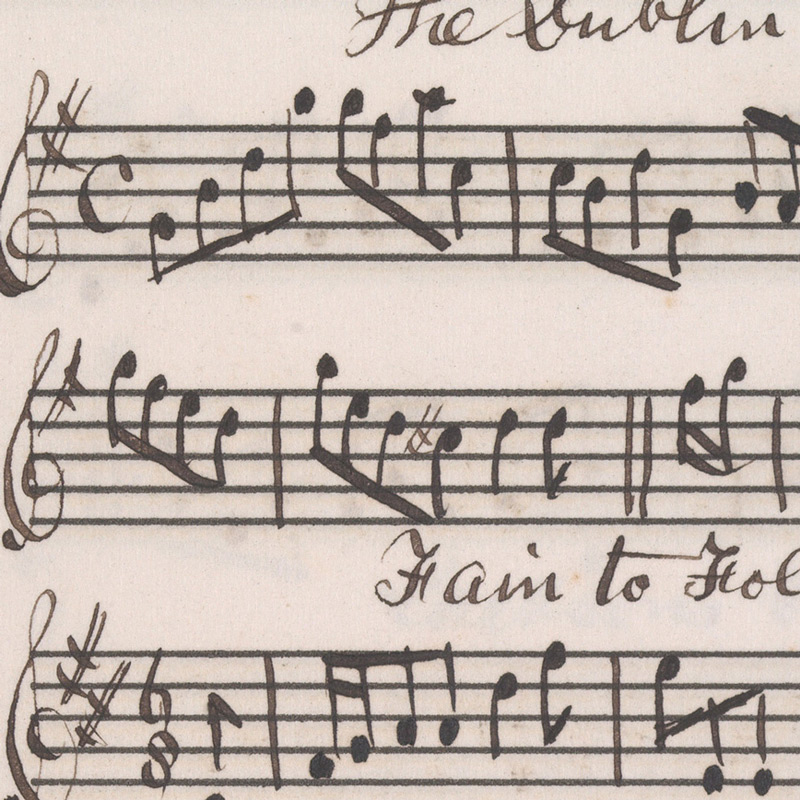 The Dublin
Fain to Fol
6
8